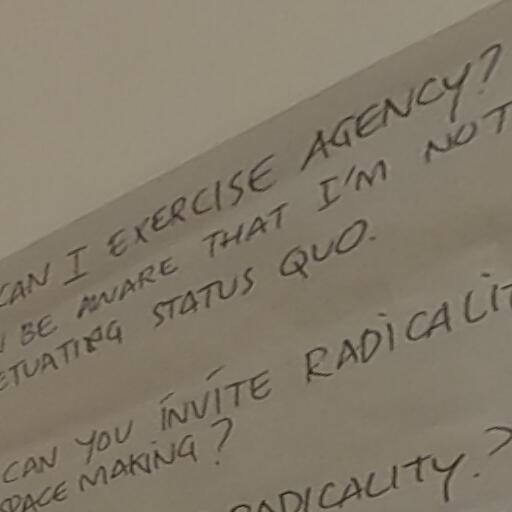 CAN I EXERCISE AGENCY?
BE AWARE THAT I'M NOT
ETUATING STATUS QUO.
CAN YOU INVITE RADICALIT
SPACE MAKING?
RADICALITY?